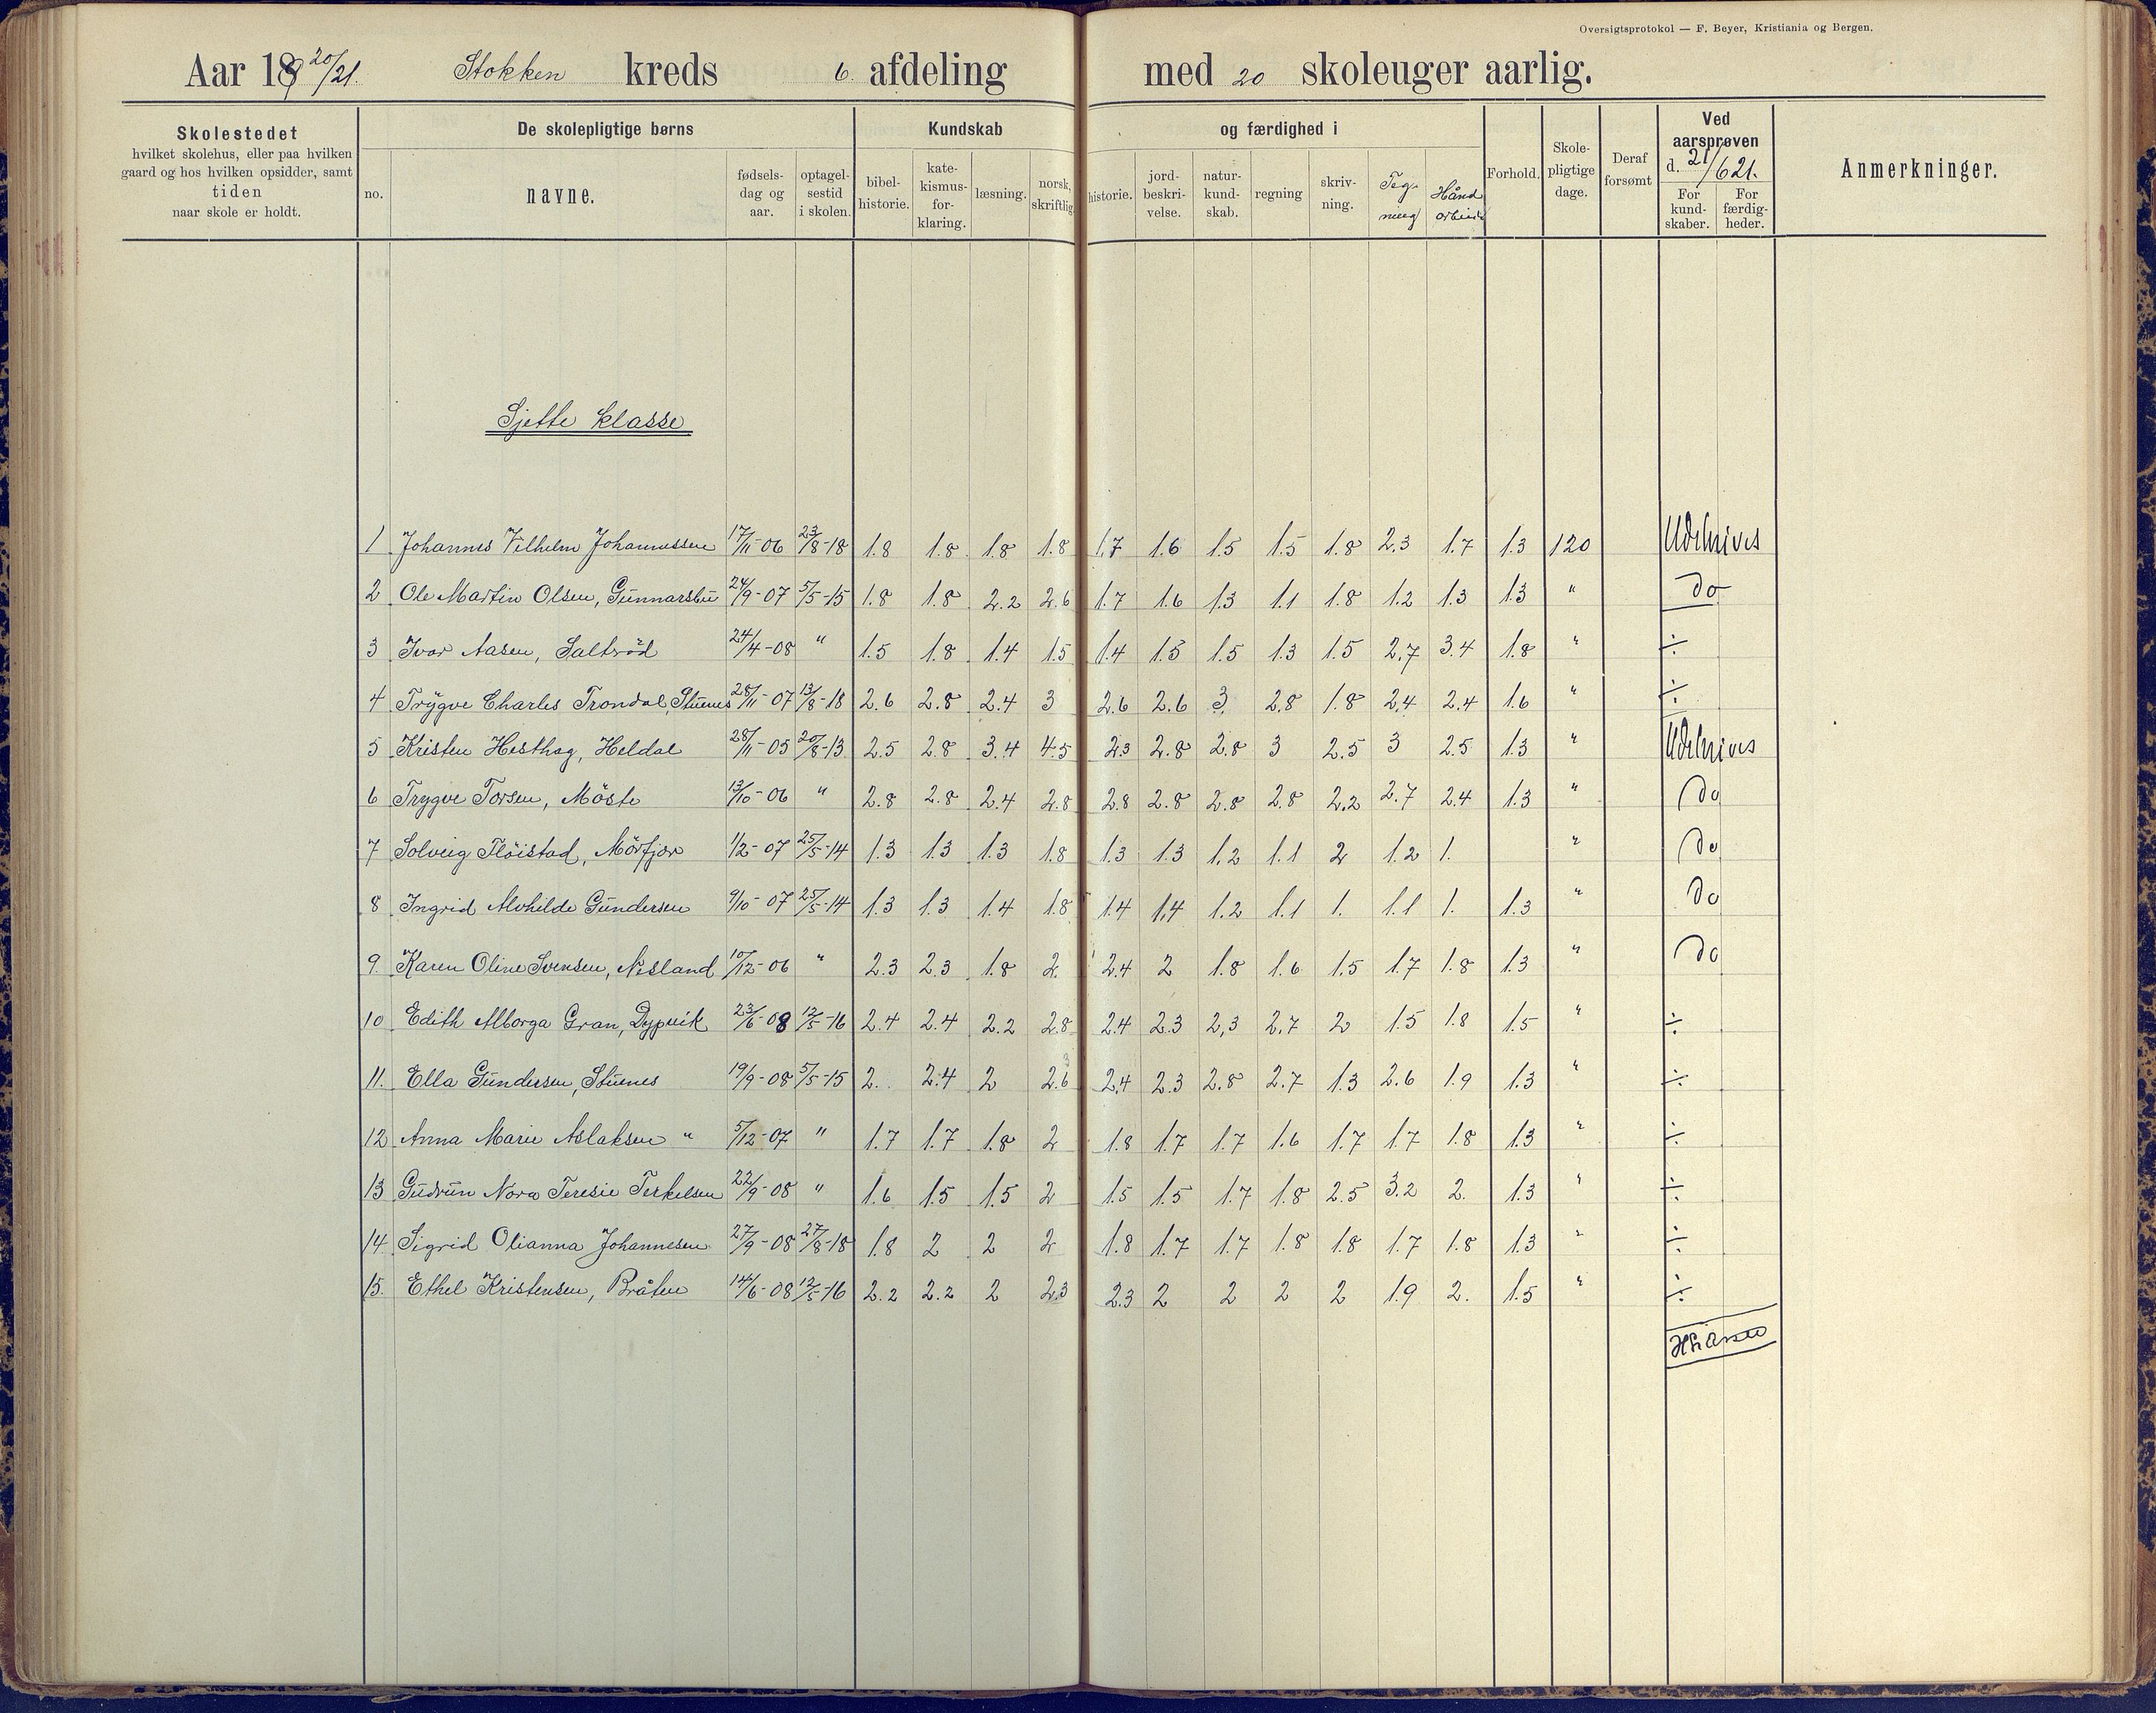 Oversigtsprotokol — F. Beyer, Kristiania og Bergen.
Aar 1920/21. Stokken kreds 6. afdeling med 20 skoleuger aarlig.
Skolestedet
hvilket skolehus, eller paa hvilken
gaard og hos hvilken opsidder, samt
tiden
naar skole er holdt.
De skolepligtige børns
no.
navne.
fødsels-
dag og
aar.
optagel-
sestid
i skolen.
Kundskab
bibel-
historie.
kate-
kismus-
for-
klaring.
læsning.
norsk,
skriftlig.
og færdighed i
historie.
jord-
beskri-
velse.
natur-
kund-
skab.
regning
skriv-
ning.
Teg-
ning
Hånd
arbeide
Forhold.
Skole-
pligtige
dage.
Deraf
forsømt
Ved
aarsprøven
d. 21/6 21.
For
kund-
skaber.
For
færdig-
heder.
Anmerkninger.
Sjette klasse
1 Johannes Vilhelm Johannessen 17/11-06 23/8-18 1.8 1.8 1.8 1.8 1.7 1.6 1.5 1.5 1.8 2.3 1.7 1.3 120 Udskrives
2 Ole Martin Olsen, Gunnarsbu 24/9-07 5/5-15 1.8 1.8 2.2 2.6 1.7 1.6 1.3 1.1 1.8 1.2 1.3 1.3 " do
3 Ivar Aasen, Saltrød 24/4-08 " 1.5 1.8 1.4 1.5 1.4 1.5 1.5 1.3 1.5 2.7 3.4 1.8 " ÷
4 Trygve Charles Trondal, Stuenes 28/11-07 13/8-18 2.6 2.8 2.4 3 2.6 2.6 3 2.8 1.8 2.4 2.4 1.6 " ÷
5 Kristen Hesthag, Heldal 28/11-05 20/8-13 2.5 2.8 3.4 4.5 2.3 2.8 2.8 3 2.5 3 2.5 1.3 " Udskrives
6 Trygve Torsen, Möste 13/10-06 " 2.8 2.8 2.4 2.8 2.8 2.8 2.8 2.8 2.2 2.7 2.4 1.3 " do
7 Solveig Flöistad, Mörfjær 1/2-07 25/5-14 1.3 1.3 1.3 1.8 1.3 1.3 1.2 1.1 2 1.2 1. " do
8 Ingrid Alvhilde Gundersen 9/10-07 25/5-14 1.3 1.3 1.4 1.8 1.4 1.4 1.2 1.1 1. 1.1 1. 1.3 " do
9. Karen Oline Svensen, Nesland 10/12-06 " 2.3 2.3 1.8 2 2.4 2 1.8 1.6 1.5 1.7 1.8 1.3 " do
10 Edith Alborga Gran, Dypvik 23/6-08 12/5-16 2.4 2.4 2.2 2.8 2.4 2.3 2,3 2.7 2 1.5 1.8 1.5 " ÷
11. Ella Gundersen, Stuenes 19/9-08 5/5-15 2. 2.4 2 2.6 2.4 2.3 2.8 2.7 1.3 2.6 1.9 1.3 " ÷
12 Anna Marie Aslaksen " 5/12-07 " 1.7 1.7 1.8 2 1.8 1.7 1.7 1.6 1.7 1.7 1.8 1.3 " ÷
13 Gudrun Nora Teresie Terkelsen 22/9-08 " 1.6 1.5 1.5 2 1.5 1.5 1.7 1.8 2.5 3.2 2. 1.3 " ÷
14 Sigrid Olianna Johannesen 27/9-08 27/8-18 1.8 2 2 2 1.8 1.7 1.7 1.8 1.8 1.7 1.8 1.3 " ÷
15. Ethel Kristensen, Bråten 14/6-08 12/5-16 2.2 2.2 2 2.3 2.3 2 2 2 2 1.9 2. 1.5 " ÷